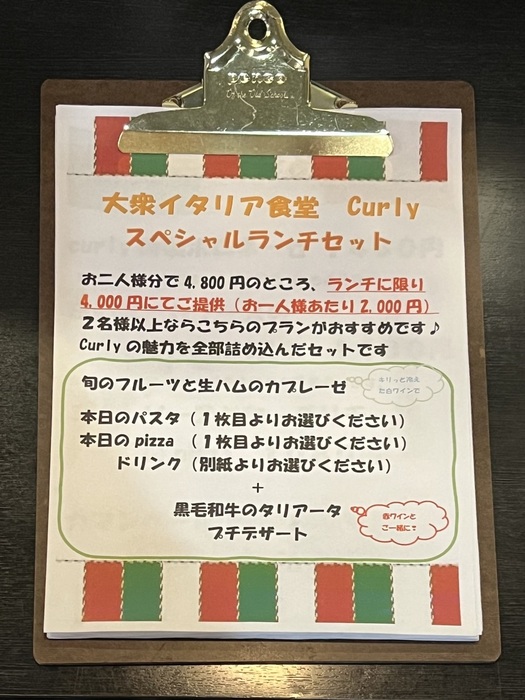 penco
大衆イタリア食堂 Curly
スペシャルランチセット
お二人様分で4,800円のところ、ランチに限り
4,000円にてご提供(お一人様あたり2,000円)
2名様以上ならこちらのプランがおすすめです♪
Curlyの魅力を全部詰め込んだセットです
旬のフルーツと生ハムのカプレーゼ
キリっと冷え
た白ワインで
本日のパスタ(1枚目よりお選びください)
本日のpizza (1枚目よりお選びください)
ドリンク(別紙よりお選びください)
+
黒毛和牛のタリアータ
赤ワインと
ご一緒に❣
プチデザート